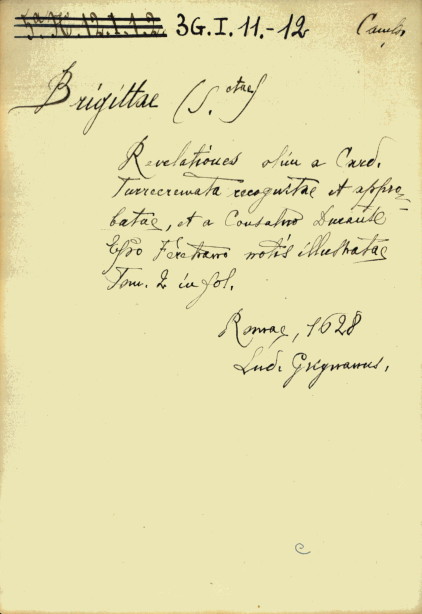 5ª K 12.I.1.2 3G.I.11.-12
Brigittae (S.ctae)
Revelationes olim a Card.
Turrecremata recognitae et appro-
batae, et a Consalvo Durante
Epo Feretrano notis illustratae
Tom. 2 in fol.
Romae, 1628
Lud. Grignanus.
c